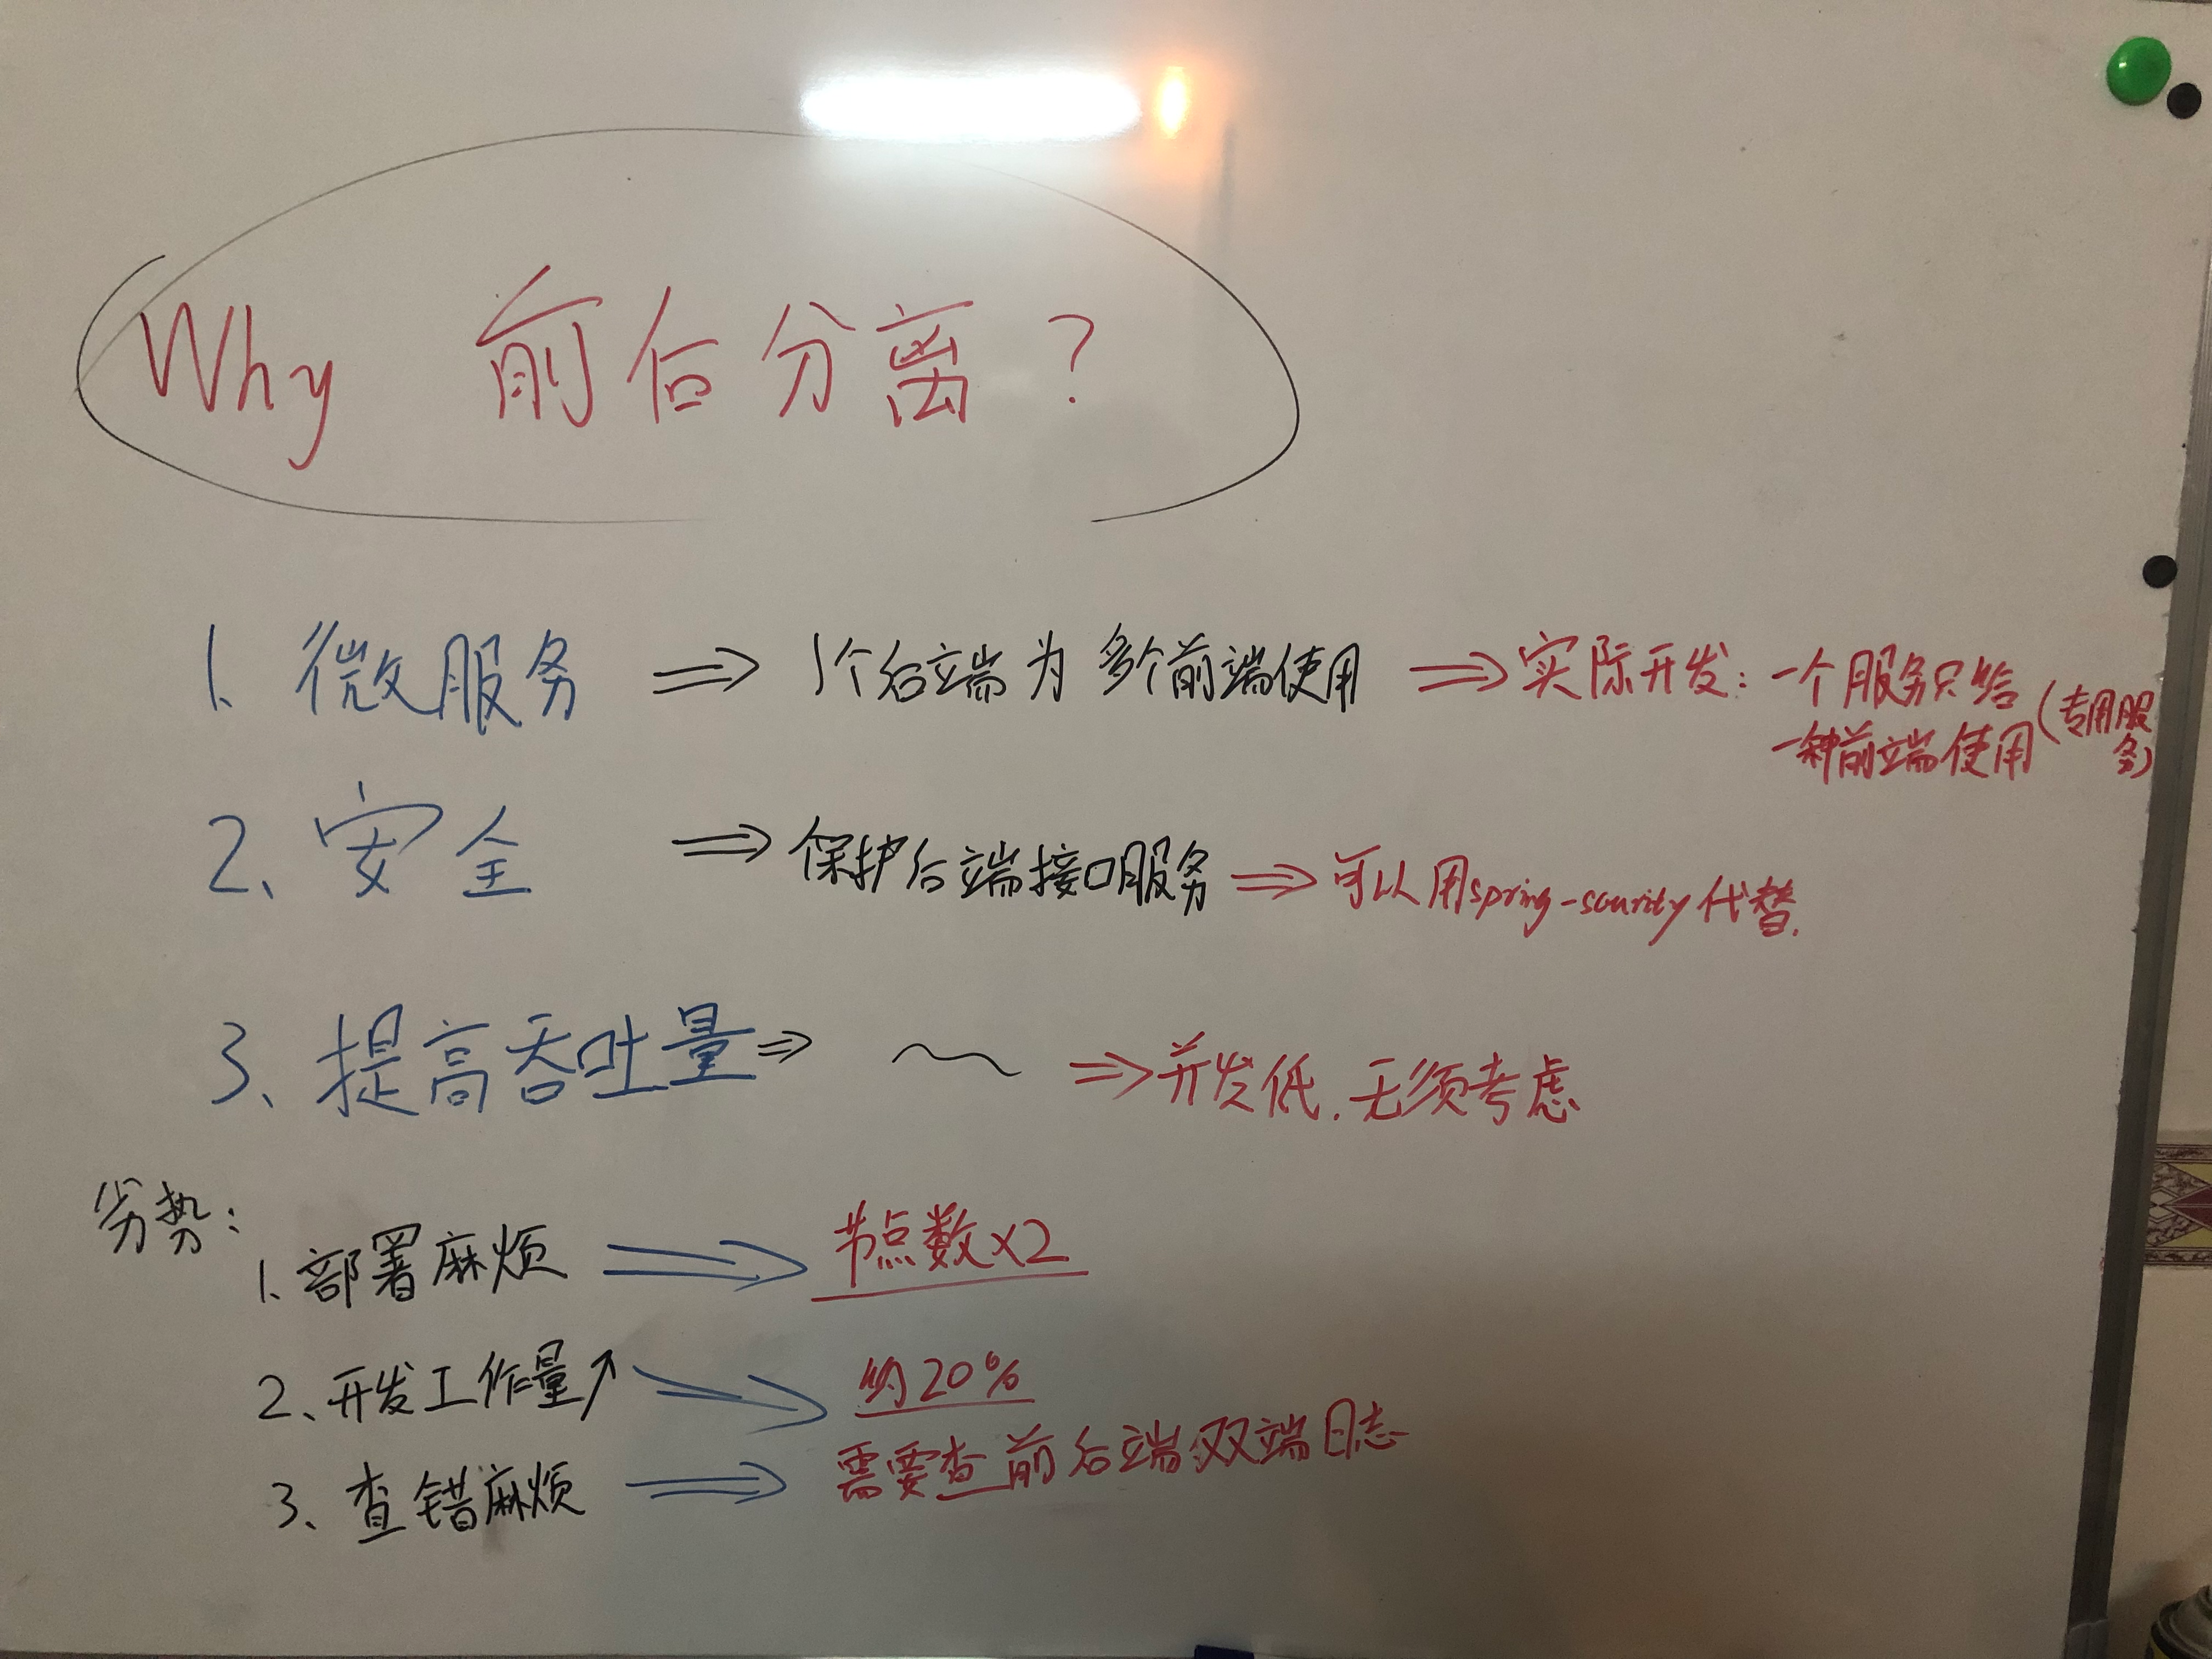 Why 前后分离?
1. 微服务 ⇒ 1个后端为多个前端使用 ⇒ 实际开发: 一个服务只给
一种前端使用(专用服
务)
2、安全 ⇒ 保护后端接口服务 ⇒ 可以用spring-scurity代替.
3、提高吞吐量 ⇒ ~ ⇒ 并发低.无须考虑
劣势:
1. 部署麻烦 ⇒ 节点数×2
2、开发工作量↗ ⇒ 约20%
3、查错麻烦 ⇒ 需要查前后端双端日志